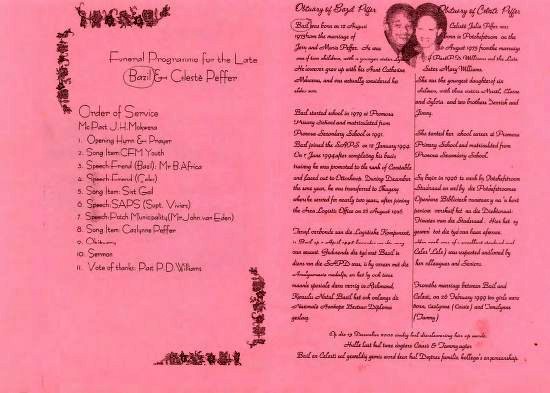 Funeral Programme for the Late
Bazil & Celesté Peffer
Order of Service
Mc Past. J.H. Mokwena
1. Opening Hymn & Prayer
2. Song Item: CFM Youth
3. Speech: Friend (Bazil): Mr B. Africa
4. Speech: Friend (Cele)
5. Song Item: Sist Gail
6. Speech: SAPS (Supt. Vivier)
7. Speech: Potch Municipality (Mr. John van Eden)
8. Song Item: Carlynne Peffer
9. Obituary
10. Sermon
11. Vote of thanks: Past P.D. Williams
Obituary of Bazil Peffer
Bazil was born on 12 August
1973 from the marriage of
Jerry and Maria Peffer. He was
one of two children, with a younger sister
He however grew up with his Aunt Catherine
and was actually considered her
Bazil started school in 1979 at Promosa
Primary School and matriculated from
Promosa Secondary School in 1991.
Bazil joined the SAPS on 12 January 1994.
On 7 June 1994 after completing his basic
training he was promoted to the rank of Constable
and placed out to Ottosdal. During December
the same year, he was transferred to
where he served for nearly two years, after joining
the Area Logistic Office on 15 August 1996.
Terwyl verbonde aan die Logistieke Komponent,
is Bazil op 1 April 1998 bevorder na die rang
van sersant. Gedurende die tyd wat Bazil in
diens van die SAPD was, is hy ervaar met die
medalje, en het hy ook twee
maande spesiale diens verrig in Richmond,
Kwazulu Natal. Bazil het ook onlangs die
Nasionale Hoërskool Bestuur Diploma
geslaag.
Obituary of Celesté Peffer
Celesté Julia Peffer was
born in Potchefstroom on the
August 1975 from the marriage
of Past P.D. Williams and the Late
Sister Mary Williams.
She was the youngest daughter of six
children, with three sisters
and Sylvia and two brothers Derrick and
Jimmy.
She started her school career at Promosa
Primary School and matriculated from
Promosa Secondary School.
Sy begin in 1996 te werk by Potchefstroom
Stadsraad en wel by die Potchefstroomse
Openbare Biblioteek vanwaar sy na 'n kort
periode verskuif het na die Direktoraat:
van die Stadsraad. Hier het sy
gewerk tot die tyd van haar afsterwe.
Cele ('Lele') was respected and loved by
her colleagues and Seniors.
From the marriage between Bazil and
Celest, on 26 February 1999 two girls were
born, Caslynne (Cassie) and Tamslynne
(Tammy)
Op die 19 December 2000
Hulle laat hul twee dogters Cassie & Tammy agter.
Bazil en Celesté sal geweldig gemis word deur hul Dogters familie, kollega's en gemeenskap.